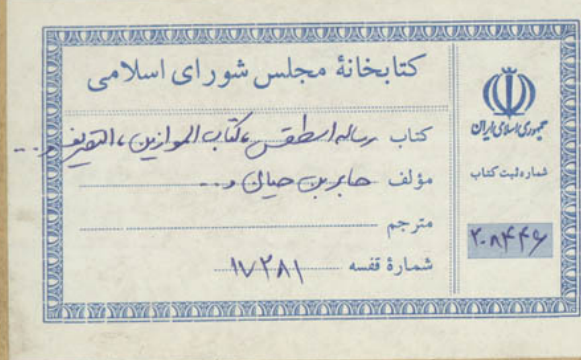 کتابخانهٔ مجلس شورای اسلامی
کتاب رساله اسطقس، کتاب الموازین، التصریف و...
مؤلف جابر بن حیان و...
مترجم
شمارهٔ قفسه ۱۷۲۸۱
جمهوری اسلامی ایران
شماره ثبت کتاب
۲۰۸۴۴۶